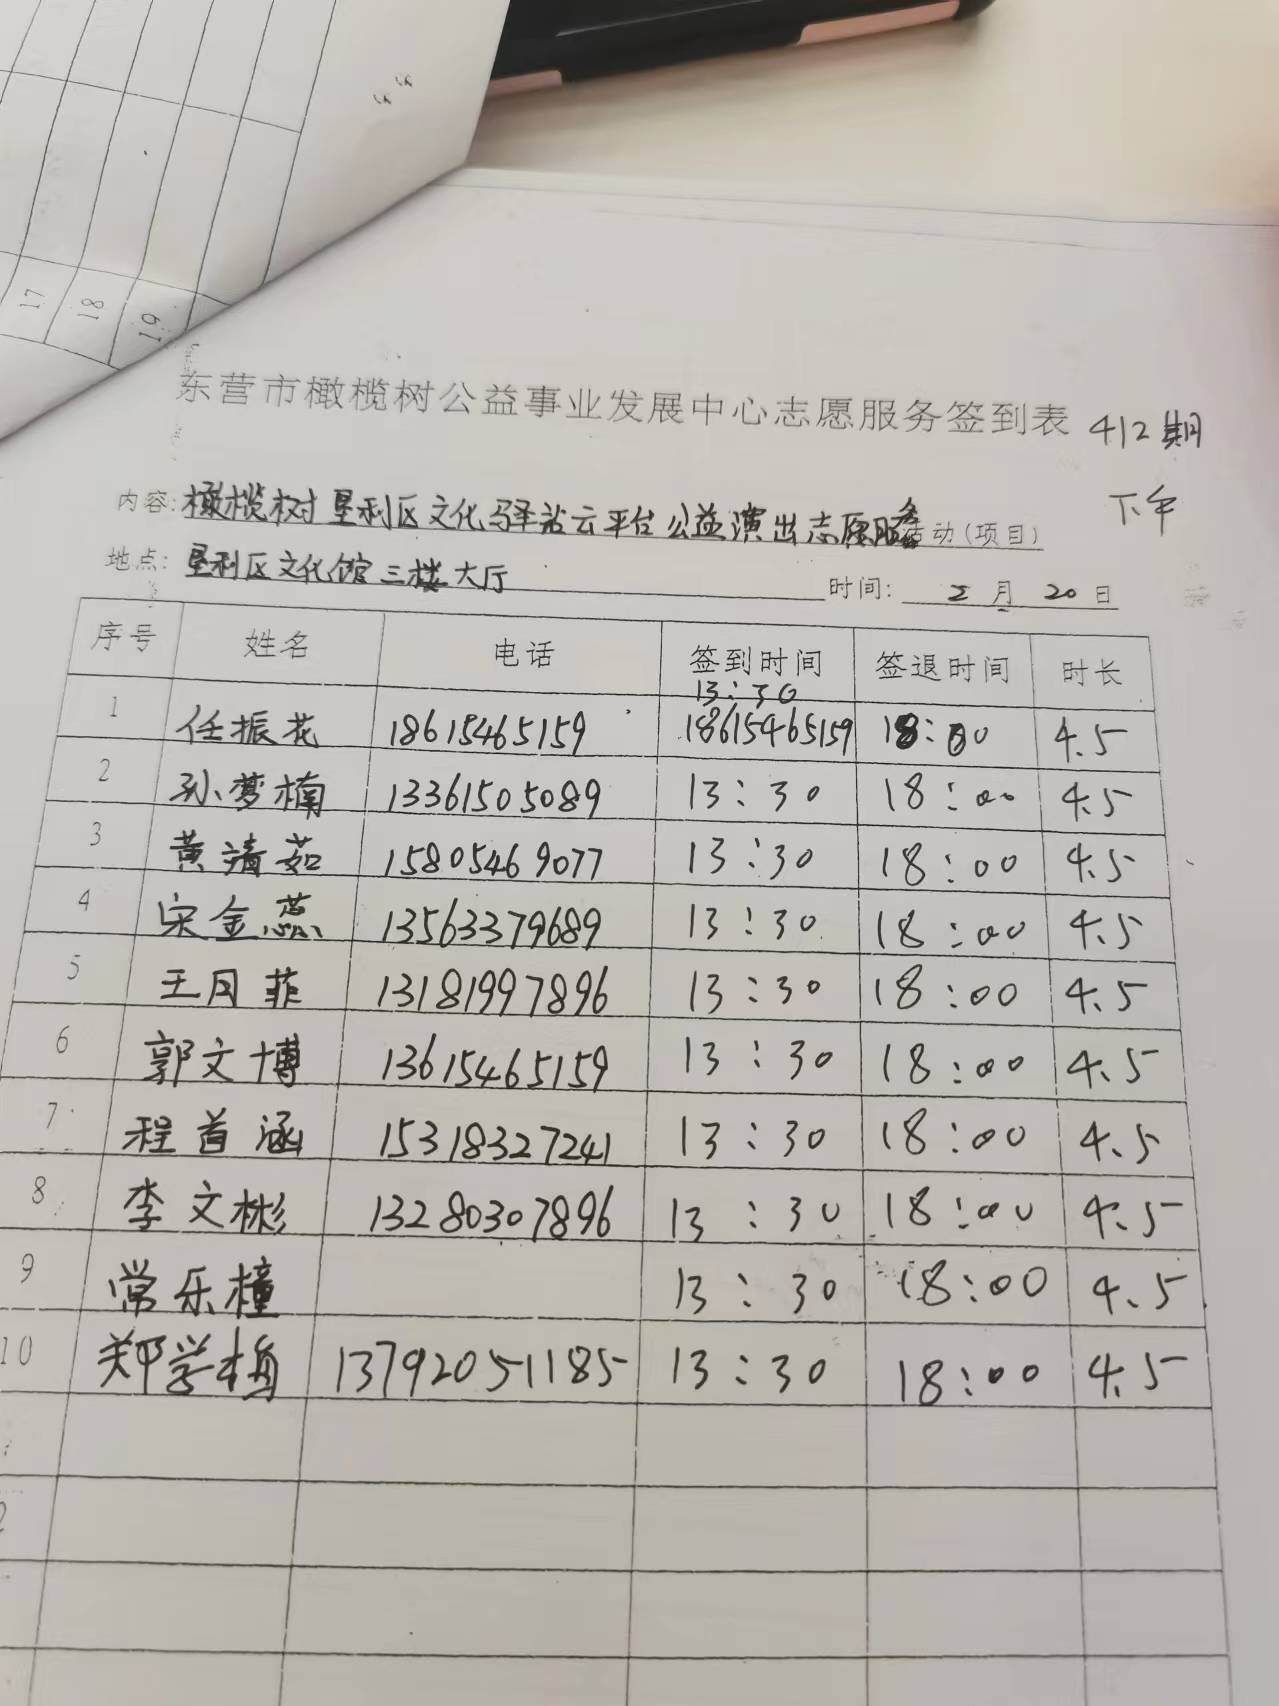 17
18
19
东营市橄榄树公益事业发展中心志愿服务签到表 412期
内容: 橄榄树垦利区文化驿站云平台公益演出志愿服务活动(项目) 下午
地点: 垦利区文化馆三楼大厅 时间: 2月20日
序号 姓名 电话 签到时间 签退时间 时长
13:30
1 任振花 18615465159 18615465159 18:00 4.5
2 孙梦楠 13361505089 13:30 18:00 4.5
3 黄靖茹 15805469077 13:30 18:00 4.5
4 宋金蕊 13563379689 13:30 18:00 4.5
5 王月菲 13181997896 13:30 18:00 4.5
6 郭文博 13615465159 13:30 18:00 4.5
7 程首涵 15318327241 13:30 18:00 4.5
8 李文彬 13280307896 13:30 18:00 4.5
9 常乐橦 13:30 18:00 4.5
10 郑学梅 13792051185 13:30 18:00 4.5